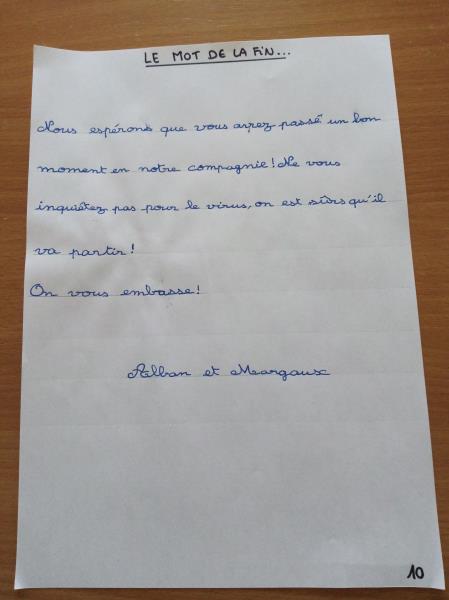 LE MOT DE LA FIN...
Nous espérons que vous ayez passé un bon
moment en notre compagnie! Ne vous
inquiétez pas pour le virus, on est sûrs qu'il
va partir!
On vous embasse!
Alban et Margaux
10